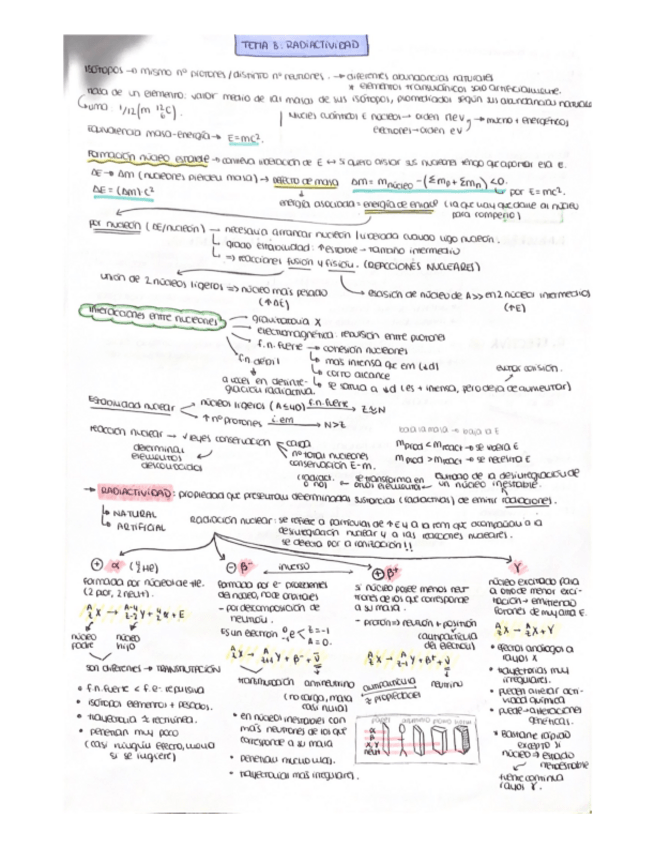 TEMA 8: RADIACTIVIDAD
Isótopos → mismo nº protones / distinto nº neutrones. → diferentes abundancias naturales
* elementos transuránicos solo artificialmente.
masa de un elemento: valor medio de las masas de sus isótopos, promediados según sus abundancias naturales
↳ uma: 1/12 (m ¹²₆C).
Niveles cuánticos E núcleos → orden MeV
electrones → orden eV
→ mucho + energéticos
Equivalencia masa-energía → E=mc².
Formación núcleo estable → conlleva liberación de E ↔ si quiero disociar sus nucleones tengo que aportar esa E.
ΔE → Δm (nucleones pierden masa) → defecto de masa Δm = m núcleo - (Σmp + Σmn) < 0.
ΔE = (Δm) c²
↳ por E=mc².
energía asociada = energía de enlace (la que hay que darle al núcleo para romperlo)
por nucleón (ΔE/nucleón) → necesaria arrancar nucleón / liberada cuando ligo nucleón.
↳ grado estabilidad: ↑ estable → tamaño intermedio
↳ ⇒ reacciones fusión y fisión. (REACCIONES NUCLEARES)
unión de 2 núcleos ligeros ⇒ núcleo más pesado
(↑ΔE)
escisión de núcleo de A>> en 2 núcleos intermedios
(↑E)
Interacciones entre nucleones
gravitatoria X
electromagnética: repulsión entre protones
f.n. fuerte → cohesión nucleones
↳ más intensa que em (↓d)
↳ corto alcance
evitar colisión.
f.n. débil
a veces en desintegración radiactiva.
↳ se anula a ↓d (es + intensa, pero deja de aumentar)
Estabilidad nuclear
núcleos ligeros (A≤40) f.n. fuerte → Z≈N
↑ nº protones i.em → N>Z
reacción nuclear → leyes conservación
carga
nº total nucleones
conservación E-m.
determinar elementos desconocidos
baja la masa → baja la E
m prod < m react → se libera E
m prod > m react → se necesita E
(radiact. o no) ← se transforma en otro elemento ← cuando de la desintegración de un núcleo inestable.
→ RADIACTIVIDAD: propiedad que presentan determinadas sustancias (radiactivas) de emitir radiaciones.
↳ NATURAL
↳ ARTIFICIAL
Radiación nuclear: se refiere a partículas de ↑E y a la rem que acompañan a la
desintegración nuclear y a las reacciones nucleares.
se detecta por la ionización!!
⊕ α (⁴₂He)
formada por núcleos de He.
(2 prot, 2 neut).
ᴬ_Z X → ᴬ⁻⁴_Z-2 Y + ⁴₂α + E
núcleo padre
núcleo hijo
son diferentes → TRANSMUTACIÓN
• f.n. fuerte < f.e. repulsiva
• isótopos elementos + pesados.
• trayectoria ≈ rectilínea.
• penetran muy poco
(casi ningún efecto, salvo
si se ingiere)
⊖ β⁻
inverso
formada por e⁻ procedentes
del núcleo, no de orbitales
- por descomposición de
neutrón.
Es un electrón ⁰₋₁e < Z=-1 A=0.
ᴬ_Z X → ᴬ_Z+1 Y + β⁻ + ν̄
transmutación
antineutrino
(no carga, masa
casi nula)
• en núcleos inestables con
más neutrones de los que
corresponde a su masa
• penetran mucho más.
• trayectorias más irregulares.
⊕ β⁺
si núcleo posee menos neutrones
de los que corresponde
a su masa.
- protón ⇒ neutrón + positrón
(antipartícula
del electrón)
ᴬ_Z X → ᴬ_Z-1 Y + β⁺ + ν
antipartícula
neutrino
≈ propiedades
γ
núcleo excitado pasa
a otro de menor excitación
→ emitiendo
fotones de muy alta E.
ᴬ_Z X → ᴬ_Z X + γ
• efectos análogos a
rayos X
• trayectorias muy
irregulares.
• pueden alterar actividad
química
• puede → alteraciones
genéticas.
* Bastante rápido
excepto si
núcleo → estado
metaestable
↙
tiene continua
rayos γ.